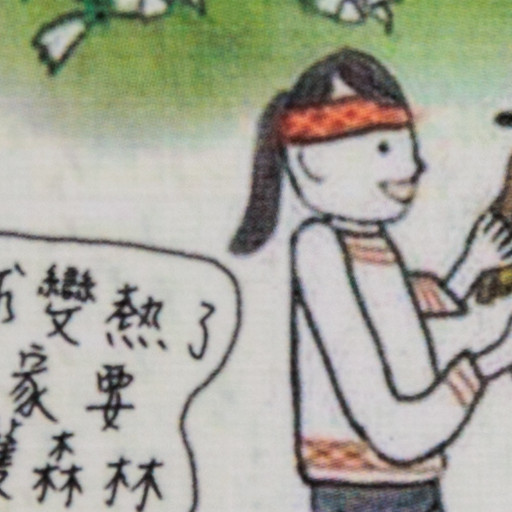 變熱了
家要
森林